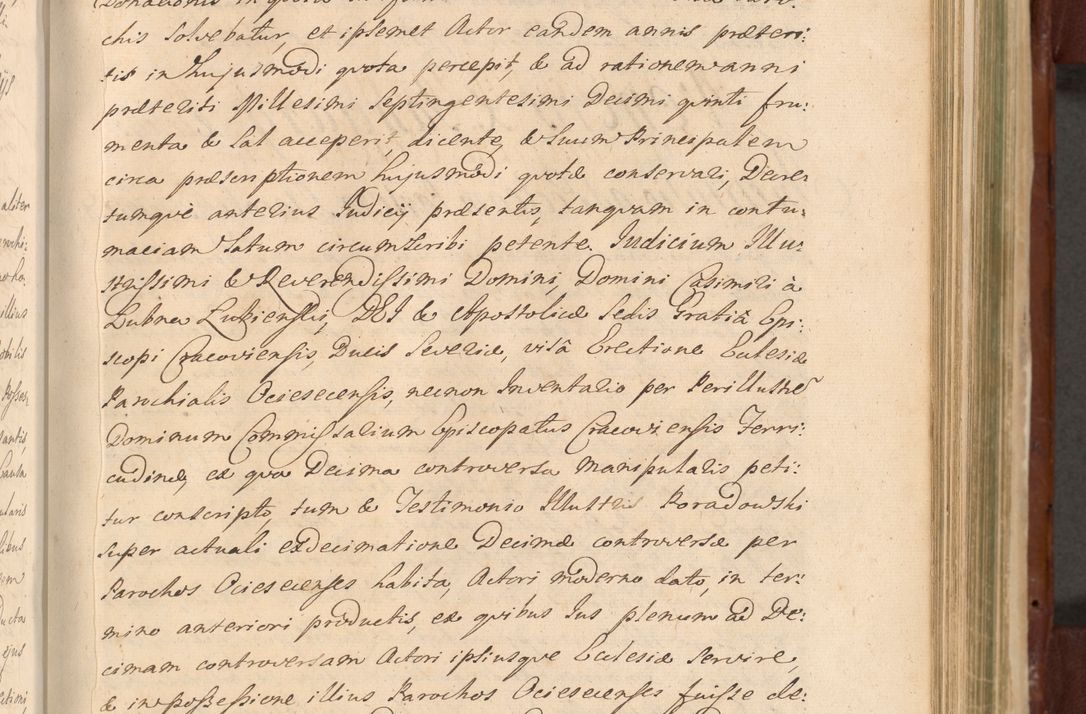 chis solvebatur, et ipsemet Actor eandem annis præteri:
tis in hujusmodi quota percepit, & ad rationem anni
præteriti Millesimi Septingentesimi Decimi quinti fru:
menta & Sal acceperit, dicente, & Suum Principalem
circa præscriptionem hujusmodi quotæ conservari, Decre:
tumqve anterius Judicij præsentis, tanqvam in contu:
maciam latum circumscribi petente. Judicium Illu:
strissimi & Reverendissimi Domini, Domini Casimiri à
Lubna Łubienski, DEI & Apostolicæ Sedis Gratiâ Epi:
scopi Cracoviensis, Ducis Severiæ, visâ Erectione Eclesiæ
Parochialis Ociesecensis, necnon Inventario per Perillustre
Dominum Commissarium Episcopatus Cracoviensis Terri:
cudinæ, ex qvo Decima controversa manipularis peti:
tur conscripto, tum & Testimonio Illustris Poradowski
super actuali exdecimatione Decimæ controversæ per
Parochos Ociesecenses habita, Actori moderno dato, in ter:
mino anteriori productis, ex qvibus Jus plenum ad De:
cimam controversam Actori ipsiusqve Eclesiæ servire,
& in possessione illius Parochos Ociesecenses fuisse de: